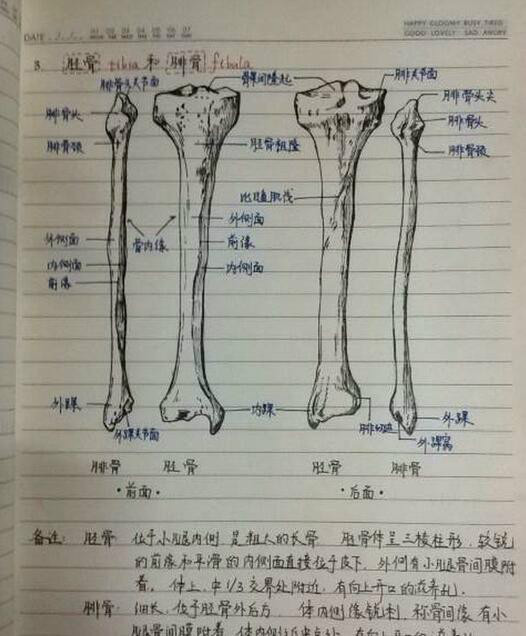 HAPPY GLOOMY BUSY TIRED
DATE 01 02 03 04 05 06 07
MON TUE WED THU FRI SAT SUN
GOOD LOVELY SAD ANGRY
3. 胫骨 tibia 和 腓骨 fibula
腓骨头关节面
髁间隆起
腓关节面
腓骨头尖
腓骨头
腓骨头
腓骨颈
胫骨粗隆
腓骨颈
比目鱼肌线
外侧面
外侧面
骨内缘
前缘
内侧面
内侧面
前缘
外踝
内踝
腓切迹
外踝
外踝关节面
外踝窝
腓骨 胫骨 胫骨 腓骨
·前面· ·后面·
备注: 胫骨: 位于小腿内侧 是粗大的长骨 胫骨体呈三棱柱形, 较锐
的前缘和平滑的内侧面直接位于皮下, 外侧有小腿骨间膜附
着。体上、中1/3交界处附近, 有向上开口的滋养孔。
腓骨: 细长, 位于胫骨外后方 体内侧缘锐利, 称骨间缘 有小
腿骨间膜附着